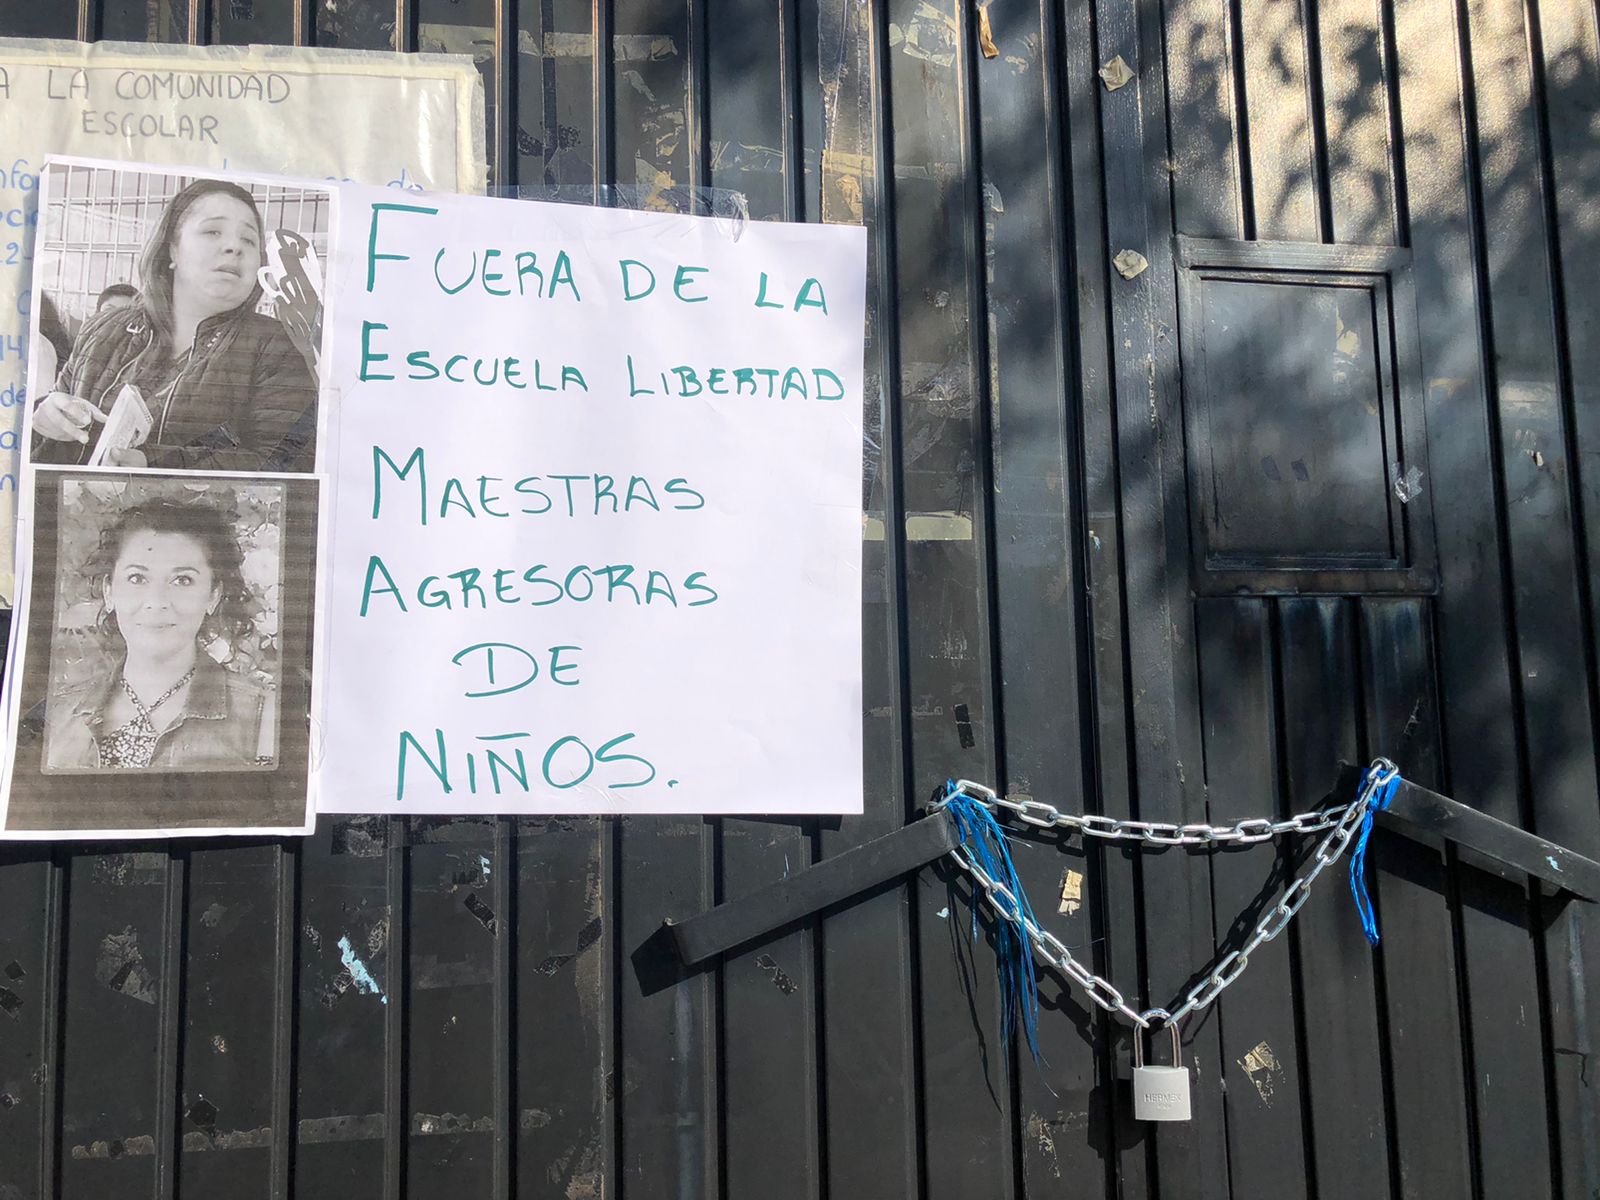 A LA COMUNIDAD
ESCOLAR
FUERA DE LA
ESCUELA LIBERTAD
MAESTRAS
AGRESORAS
DE
NIÑOS.
HERMEX